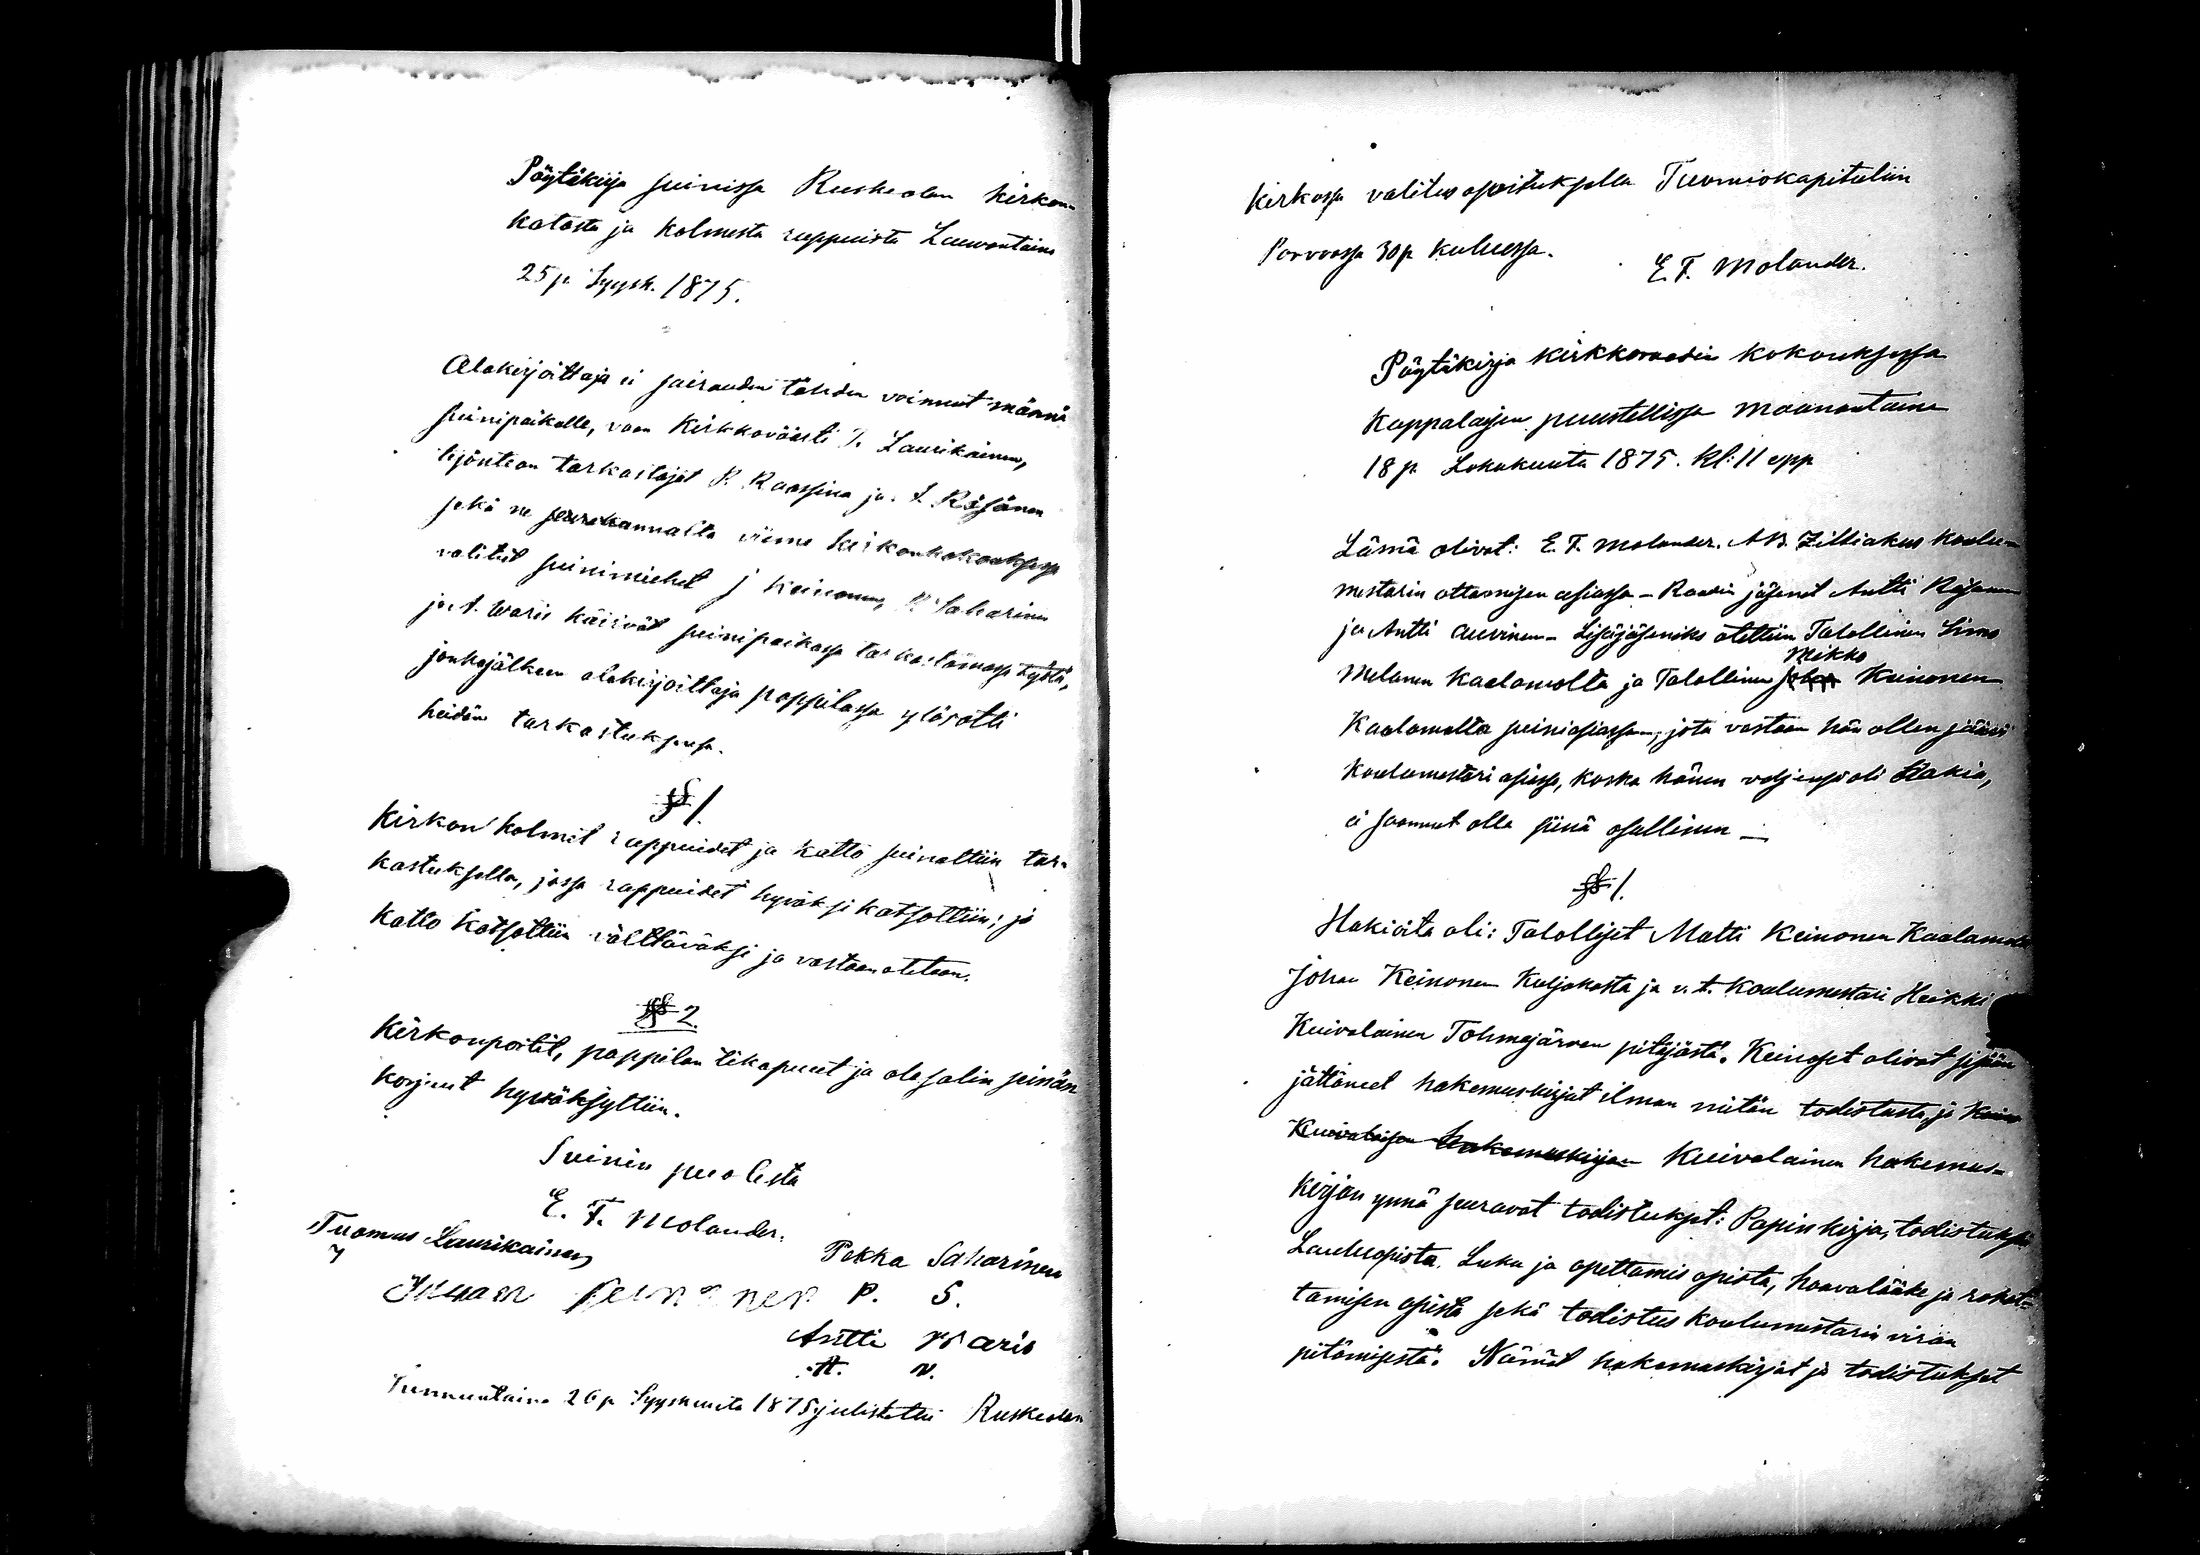 Pöytäkirja syinissä Ruskealan kirkon-
katosta ja kolmesta rappuista Lauvantaina
25 p. Syysk. 1875.
Alakirjoittaja ei sairauden tähden voinnut männä
syinipaikalle, vaan Kirkkoväärti T. Laurikainen,
työnteon tarkastajat P. Raassina ja A. Räsänen
sekä ne seurakunnalta viime kirkonkokouksessa
valitut syinimiehet J Keinonen, P. Saharinen
ja A. Waris käisivät syinipaikassa tarkastamassa työtä,
jonkajälkeen alakirjoittaja pappilassa ylösotti
heidän tarkastuksensa.
§ 1.
Kirkon kolmet rappuidet ja katto syinattiin tar-
kastuksella, jossa rappuidet hyväksi katsottiin; ja
katto katsottiin välttäväksi ja vastaanotetaan.
§ 2.
Kirkonportit, pappilan tikapuut ja ala salin seinän
korjuut hyväksyttiin.
Syinin puolesta
E. F. Molander.
Tuomas Laurikainen
Pekka Saharinen
Juhan Keinonen P. S.
Antti Waris
A. W.
Sunnuntaina 26 p. Syyskuuta 1875 julistettu Ruskealan
kirkossa valitusosoituksella Tuomiokapituliin
Porvoossa 30 p. kuluessa.
E. F. Molander.
Pöytäkirja kirkkoraadin kokouksessa
Kappalaisen puustellissa maanantaina
18 p. Lokakuuta 1875. Kl: 11 epp
Läsnä olivat: E. F. Molander. A B. Zilliakus koulu-
mestarin ottamisen asiassa - Raadin jäsenet Antti Räsänen
ja Antti Auvinen - Lisäjäseniks otettiin Talollinen Simo
Mikko
Melanen Kaalamolta ja Talollinen Johan Keinonen
Kaalamolta syiniasiassa, jota vastaan hän ollen jäävi
koulumestari asiassa, koska hänen veljensä oli Hakia,
ei saanut olla siinä osallinen —
§ 1.
Hakioita oli: Talolliset Matti Keinonen Kaalamolta
Johan Keinonen Kuljakosta ja v. t. koulumestari Heikki
Kuivalainen Tohmajärven pitäjästä. Keinoset olivat sisään
jättäneet hakemuskirjat ilman mitän todistusta, ja Kuiva
Kuivalaisen hakemuskirjan Kuivalainen hakemus-
kirjan ynnä seuravat todistukset: Papinkirja, todistukset
Lauluopista. Luku ja opettamis opista, haavalääke ja rokot-
tamisen opista sekä todistus koulumestarin viran
pitämisestä. Nämät hakemuskirjat ja todistukset